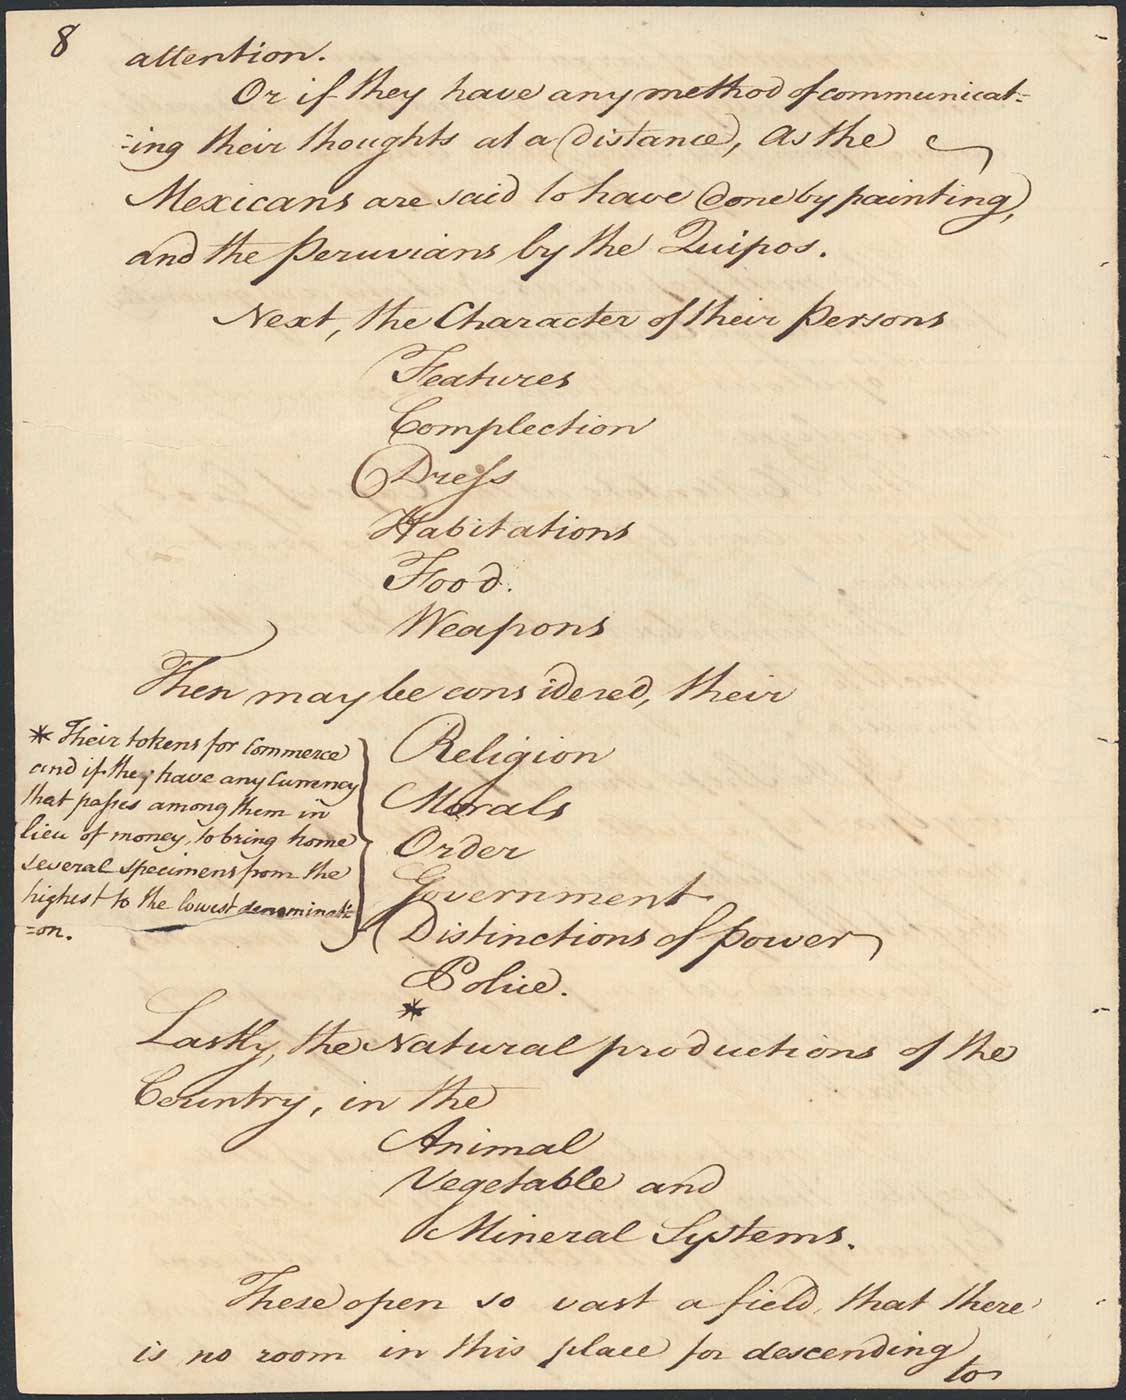 8
attention.
Or if they have any method of communicat=
=ing their thoughts at a distance, As the
Mexicans are said to have done by painting,
and the Peruvians by the Quipos.
Next, the Character of their Persons
Features
Complection
Dress
Habitations
Food.
Weapons
Then may be considered, their
Religion
Morals
Order
Government
Distinctions of Power
Police.
*
* Their tokens for Commerce
and if they have any Currency
that passes among them in
lieu of money, to bring home
several specimens from the
highest to the lowest denominati=
=on.
Lastly, the Natural productions of the
Country, in the
Animal
Vegetable and
Mineral Systems.
These open so vast a field, that there
is no room in this place for descending
to